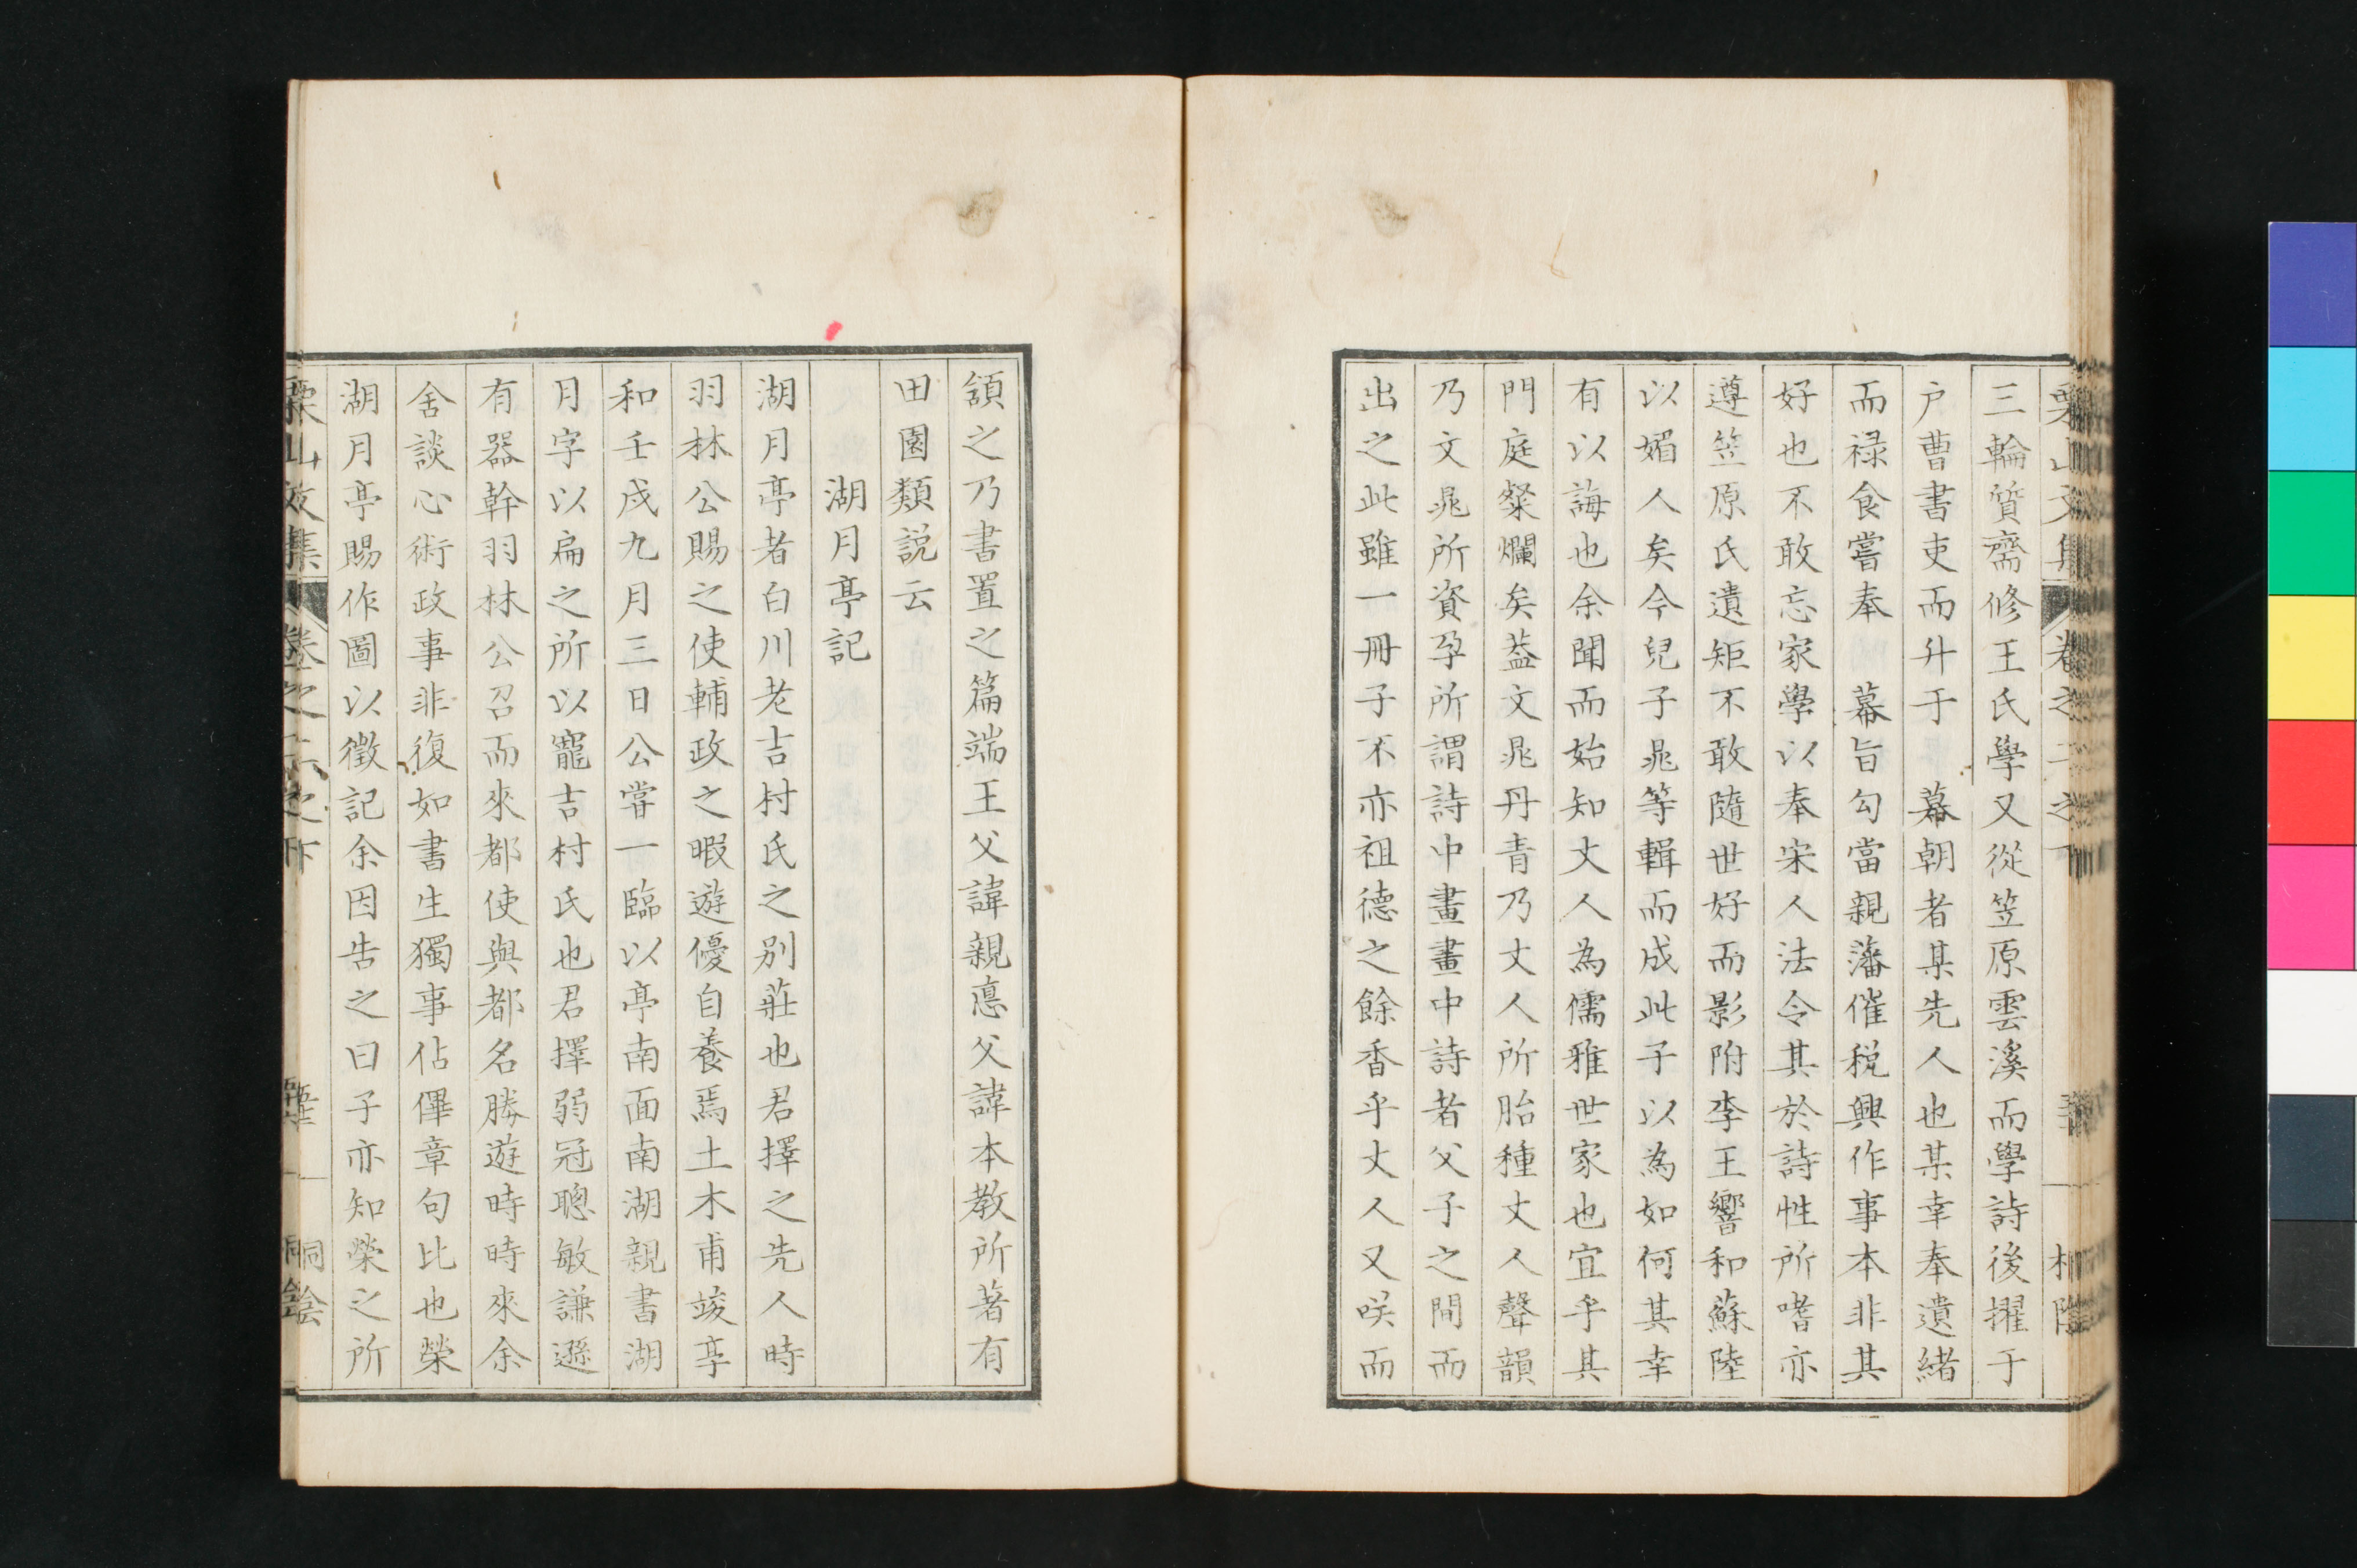 三輪質齋修王氏學又從笠原雲溪而學詩後擢于
户曹書吏而升于　幕朝者某先人也某幸奉遺緒
而禄食嘗奉　幕旨勾當親藩催税興作事本非其
好也不敢忘家學以奉宋人法令其於詩性所嗜亦
遵笠原氏遺矩不敢隨世好而影附李王響和蘇陸
以媚人矣今兒子晁等輯而成此子以為如何其幸
有以誨也余聞而始知丈人為儒雅世家也宜乎其
門庭粲爛矣葢文晁丹青乃丈人所胎種丈人聲韻
乃文晁所資孕所謂詩中畫畫中詩者父子之間而
出之此雖一冊子不亦祖德之餘香乎丈人又咲而
頷之乃書置之篇端王父諱親悳父諱本教所著有
田園類説云
湖月亭記
湖月亭者白川老吉村氏之別莊也君擇之先人時
羽林公賜之使輔政之暇遊優自養焉土木甫竣享
和壬戌九月三日公嘗一臨以亭南面南湖親書湖
月字以扁之所以寵吉村氏也君擇弱冠聰敏謙遜
有器幹羽林公召而來都使與都名勝遊時時來余
舍談心術政事非復如書生獨事佔俾章句比也榮
湖月亭賜作圖以徴記余因告之曰子亦知榮之所
栗山文集